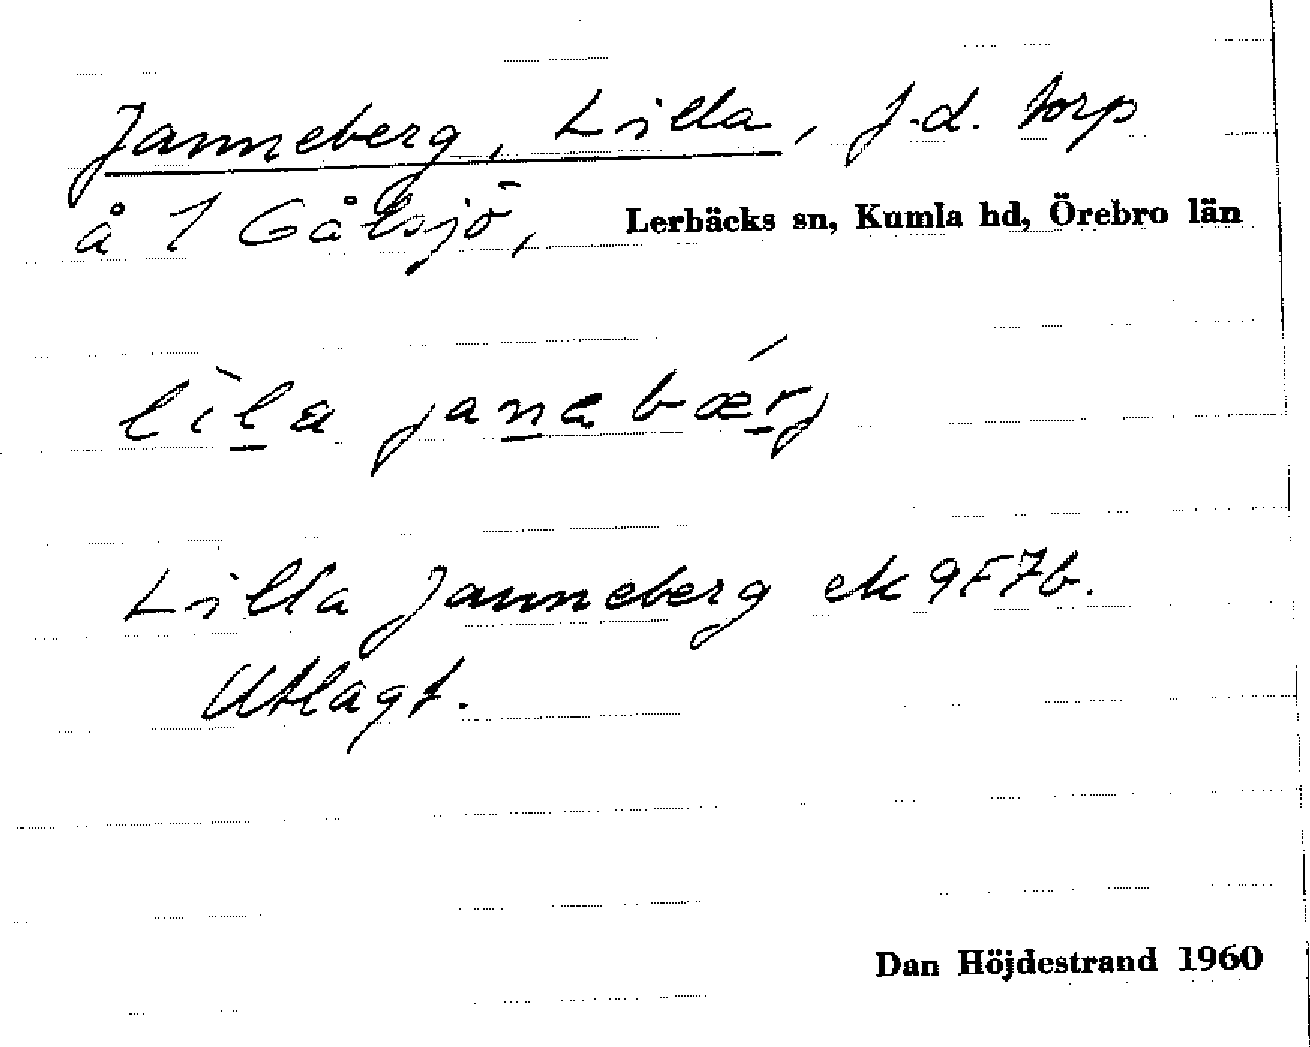 Janneberg, Lilla, f.d. torp
å 1 Gålsjö, Lerbäcks sn, Kumla hd, Örebro län
lìl̲a jan̲abǽr̲j
Lilla Janneberg ek 9F7b.
Utlagt.
Dan Höjdestrand 1960